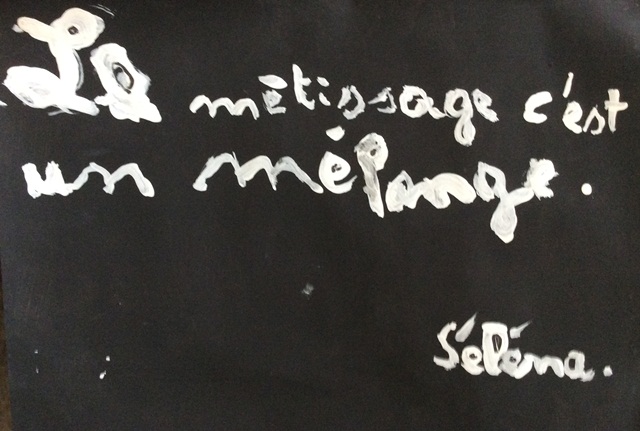 Le métissage c'est
un mélange.
Séléna.